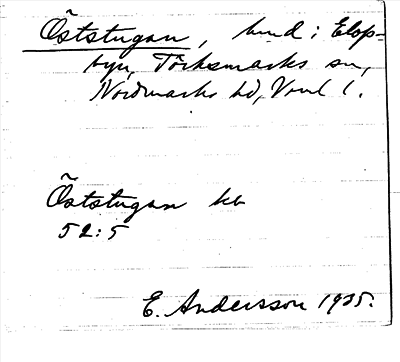 Öststugan, hmd i Elop-
byn, Töcksmarks sn,
Nordmarks hd, Vrml l.
Öststugan kb
52:5
E. Andersson 1935.